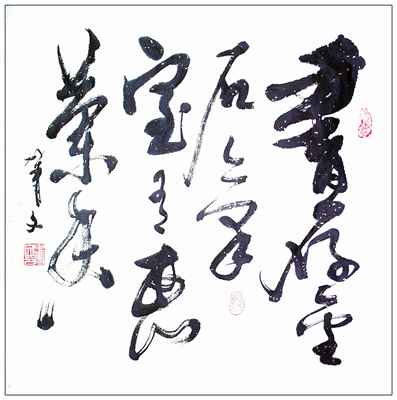 書存金
石氣
室有惠
蘭香